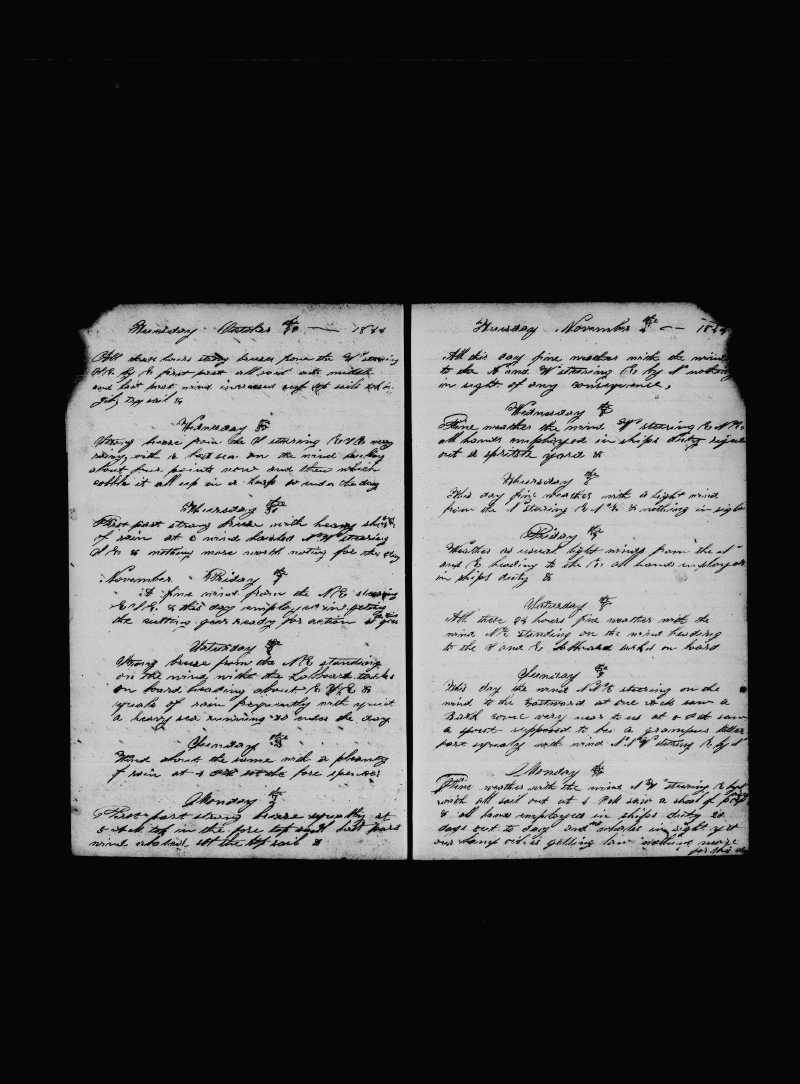 Tuesday October 29 — 18
All these hours strong breeze from the W steering
S E by E first part all sail out middle
and last part wind increased reef sails
Wednesday 30
Strong breeze from the S steering E S E very
rainy with a bad sea on the wind
about four points now and then which
it all up in a heap so ends the day
Thursday 31
First part strong breeze with heavy
of rain at 6 wind hauled N W steering
S E & nothing more worth noting for the day
November Friday 1
A fine wind from the N E steering
E S E & this day employed in getting
the cutting gear ready for action
Saturday 2
Strong breeze from the N E standing
on the wind with the Larboard tacks
on board heading about E S E &
squals of rain frequently with quite
a heavy sea running so ends the day
Sunday 3
Wind about the same with a plenty
of rain at 4 set the fore spencer
Monday 4
First part strong breeze squally at
5 in the fore top sail last part
wind set the top sail &
Tuesday November 5 — 18
All this day fine weather with the wind
to the N and W steering E by S nothing
in sight of any consequence,
Wednesday 6
Fine weather the wind W steering E N E
all hands employed in ships duty
out a spritsle yard &
Thursday 7
This day fine weather with a light wind
from the S steering E & nothing in sight
Friday 8
Weather as usual light winds from the N
and E heading to the E all hands employed
in ships duty &
Saturday 9
All these 24 hours fine weather with the
wind N E standing on the wind heading
to the S and E Larboard tacks on board
Sunday 10
This day the wind N N E steering on the
wind to the Eastward at one saw a
Bark come very near to us at saw
a spout supposed to be a grampus latter
part squally with wind steering E by S
Monday 11
Fine weather with the wind N W steering E by S
with all sail out at 4 saw a shoal of
& all hands employed in ships duty 20
days out to day and no whales in sight yet
our lamp oil is getting low nothing more
for this day